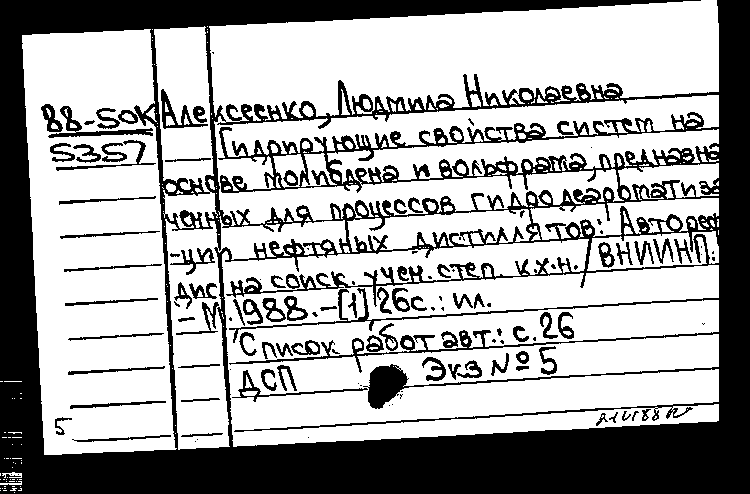 88-50К Алексеенко, Людмила Николаевна.
5357 Гидрирующие свойства систем на
основе молибдена и вольфрама, предназна
ченных для процессов гидродеароматиза
-ции нефтяных дистиллятов: Автореф
дис на соиск. учен. степ. к.х.н. / ВНИИНП.
- М. 1988. - [1] 26с.: ил.
Список работ авт.: с. 26
ДСП Экз № 5
5